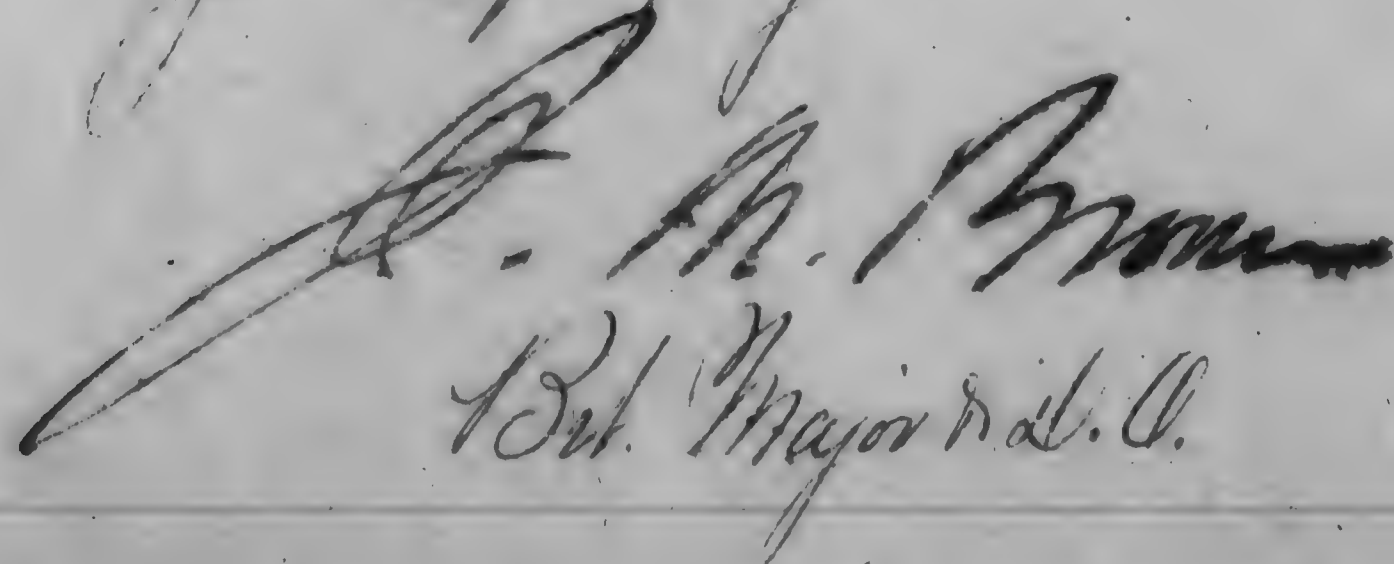 S. M. Brown
Bvt. Major & D. O.